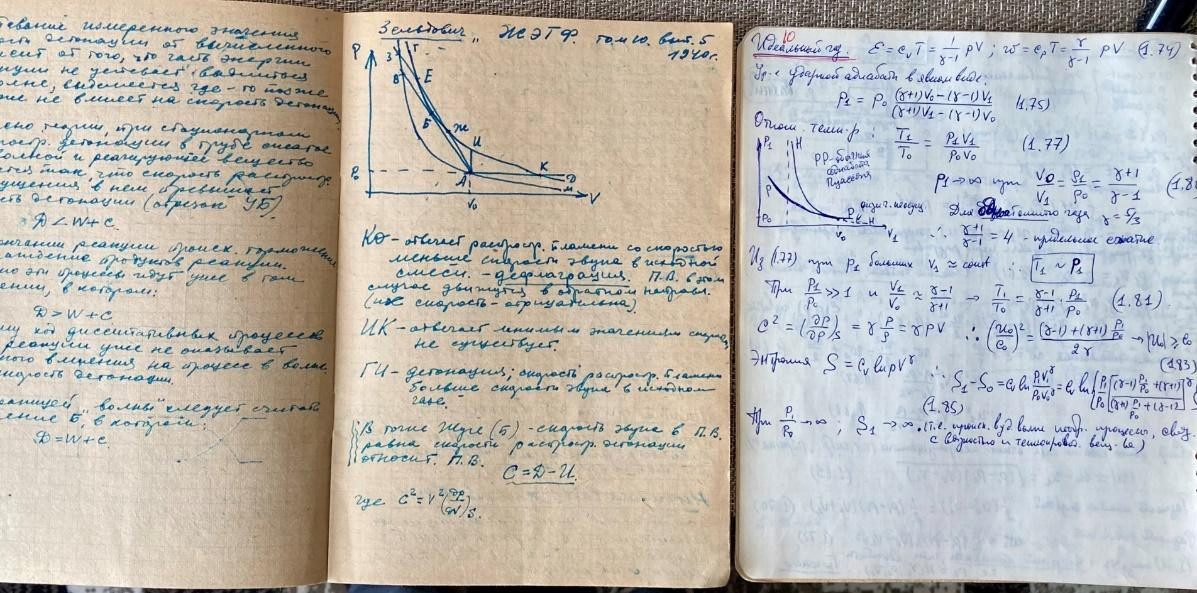 измеренного значения
детонации от вычисленного
от того, что часть энергии
не успевает выделиться
выделяется где-то позже
не влияет на скорость детонации
теории, при стационарном
распростр. детонации в трубе сжатое
волной и реагирующее вещество
так, что скорость распростр.
возмущения в нем превышает
детонации (отрезок УБ)
D < W + C
реакции происх. торможение
продуктов реакции.
эти процессы идут уже в том
в котором:
D > W + C
ход диссипативных процессов
реакции уже не оказывает
влияния на процесс в волне
скорость детонации.
„волны" следует считать
Б, в котором:
D = W + C
Зельдович „ ЖЭТФ. том 10. вып. 5
1940г.
P
З Г
В Е
Б Ж
И
К
Д
М
А
P₀
V₀
V
КД – отвечает распростр. пламени со скоростью
меньше скорости звука в исходной
смеси. – дефлаграция. П.В. в этом
случае движутся в обратном направл.
скорость – отрицательна)
ИК – отвечает мнимым значениям скорости
не существует.
ГИ – детонация; скорость распростр. пламени
больше скорости звука в исходном
газе.
В точке Жуге (Б) – скорость звука в П.В.
равна скорости распростр. детонации
относит. П.В.
C = D – U.
где C² = V²(∂p/∂V)s.
10
Идеальный газ. ε = cᵥT = 1/(γ-1) pV ; w = cₚT = γ/(γ-1) pV (1.74)
Ур-е ударной адиабаты в явном виде:
p₁ = p₀ ((γ+1)V₀ – (γ-1)V₁)/((γ+1)V₁ – (γ-1)V₀) (1.75)
Отнош. темп-р : T₁/T₀ = p₁V₁/p₀V₀ (1.77)
P₁ H
PP-обычная
адиабата
Пуассона
P
P₀
V₀ V₁
P
H
p₁→∞ при V₀/V₁ = ρ₁/ρ₀ = (γ+1)/(γ-1)
Для газа γ = 5/3
∴ (γ+1)/(γ-1) = 4 - предельное сжатие
Из (1.77) при p₁ больших V₁ ≈ const ∴ T₁ ~ P₁
При P₁/P₀ >> 1 и V₁/V₀ ≈ (γ-1)/(γ+1) → T₁/T₀ = (γ-1)/(γ+1) · P₁/P₀ (1.81).
C² = (∂P/∂ρ)s = γ P/ρ = γPV ∴ (u₀/c₀)² = ((γ-1)+(γ+1) P₁/P₀)/2γ → |u₀| ≥ c₀
(1.83)
Энтропия S = cᵥ ln pV^γ ∴ S₁-S₀ = cᵥ ln P₁V₁^γ/P₀V₀^γ = cᵥ ln {P₁/P₀ [((γ-1)P₁/P₀+(γ+1))/((γ+1)P₁/P₀+(γ-1))]^γ
(1.85)
При P₁/P₀ → ∞ ; S₁ → ∞. (т.е. происх. в уд. волне необр. процессы,
с вязкостью и теплопровод. вещ-ва)